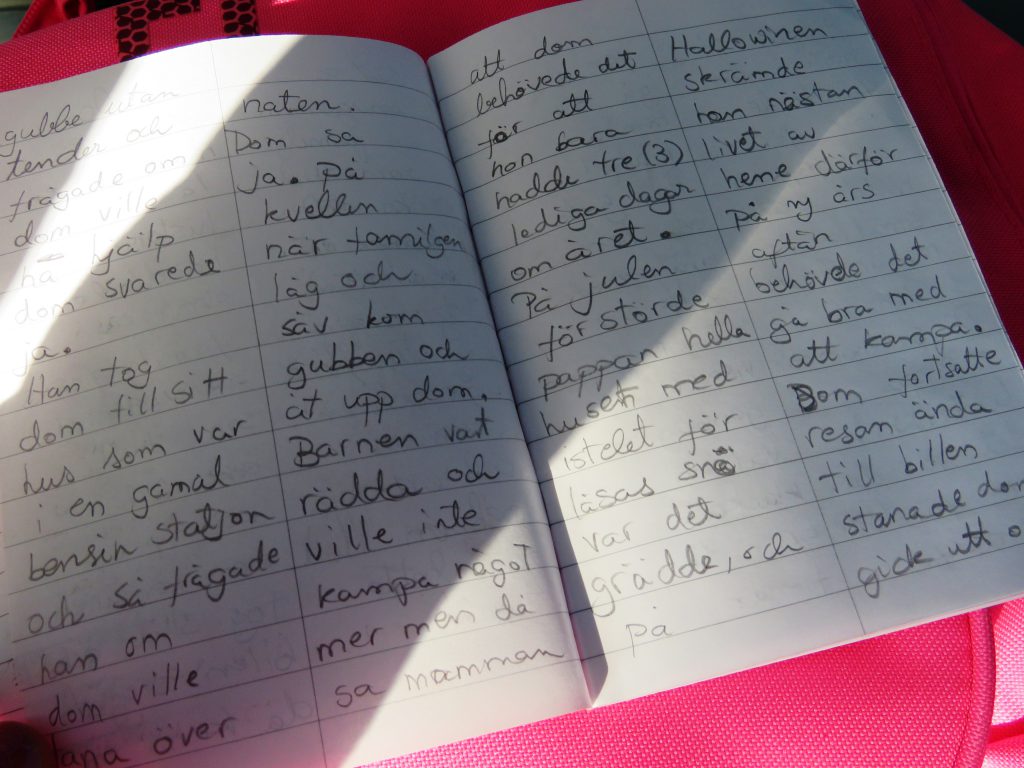 gubbe utan
tender och
frågade om
dom ville
ha hjälp
dom svarede
ja.
Han tog
dom till sitt
hus som var
i en gamal
bensin statjon
och så frågade
han om
dom ville
tana över
naten.
Dom sa
ja. på
kvellen
när familjen
låg och
sàv kom
gubben och
åt upp dom.
Barnen vart
rädda och
ville inte
kampa något
mer men då
sa mamman
att dom
behövede det
för att
hon bara
hadde tre (3)
lediga dagar
om året.
På julen
för störde
pappan hella
huset med
istelet för
läsas snö
var det
grädde, och
på
Hallowinen
skrämde
hon nästan
livet av
hene därför
på ny års
aftàn
behövde det
gå bra med
att kampa.
Dom fortsatte
resan ända
till billen
stanade dom
gick utt o